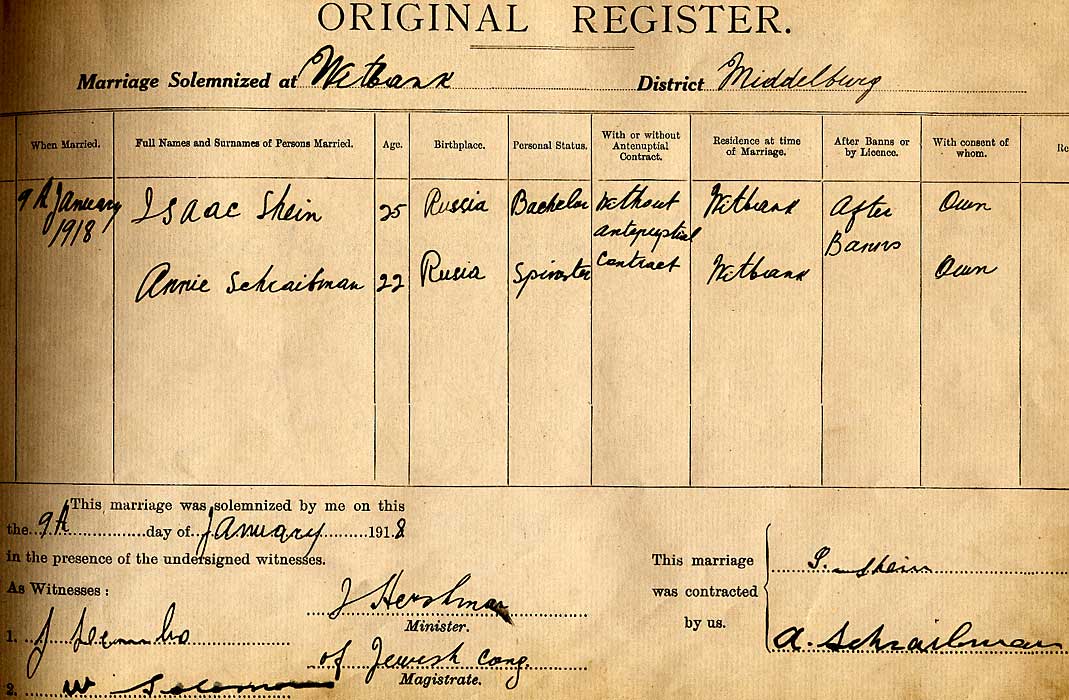 ORIGINAL REGISTER.
Marriage Solemnized at Witbank District Middelburg
When Married. Full Names and Surnames of Persons Married. Age. Birthplace. Personal Status. With or without Antenuptial Contract. Residence at time of Marriage. After Banns or by Licence. With consent of whom.
9th January 1918 Isaac Shein 25 Russia Bachelor Without antenuptial contract Witbank After Banns Own
Annie Schraibman 22 Rusia Spinster Witbank Own
This marriage was solemnized by me on this
the 9th day of January 1918
in the presence of the undersigned witnesses.
As Witnesses :
1. J
2. W Solomon
J Hershman
Minister.
of Jewish Cong
Magistrate.
This marriage
was contracted
by us.
Shein
A. Schraibman